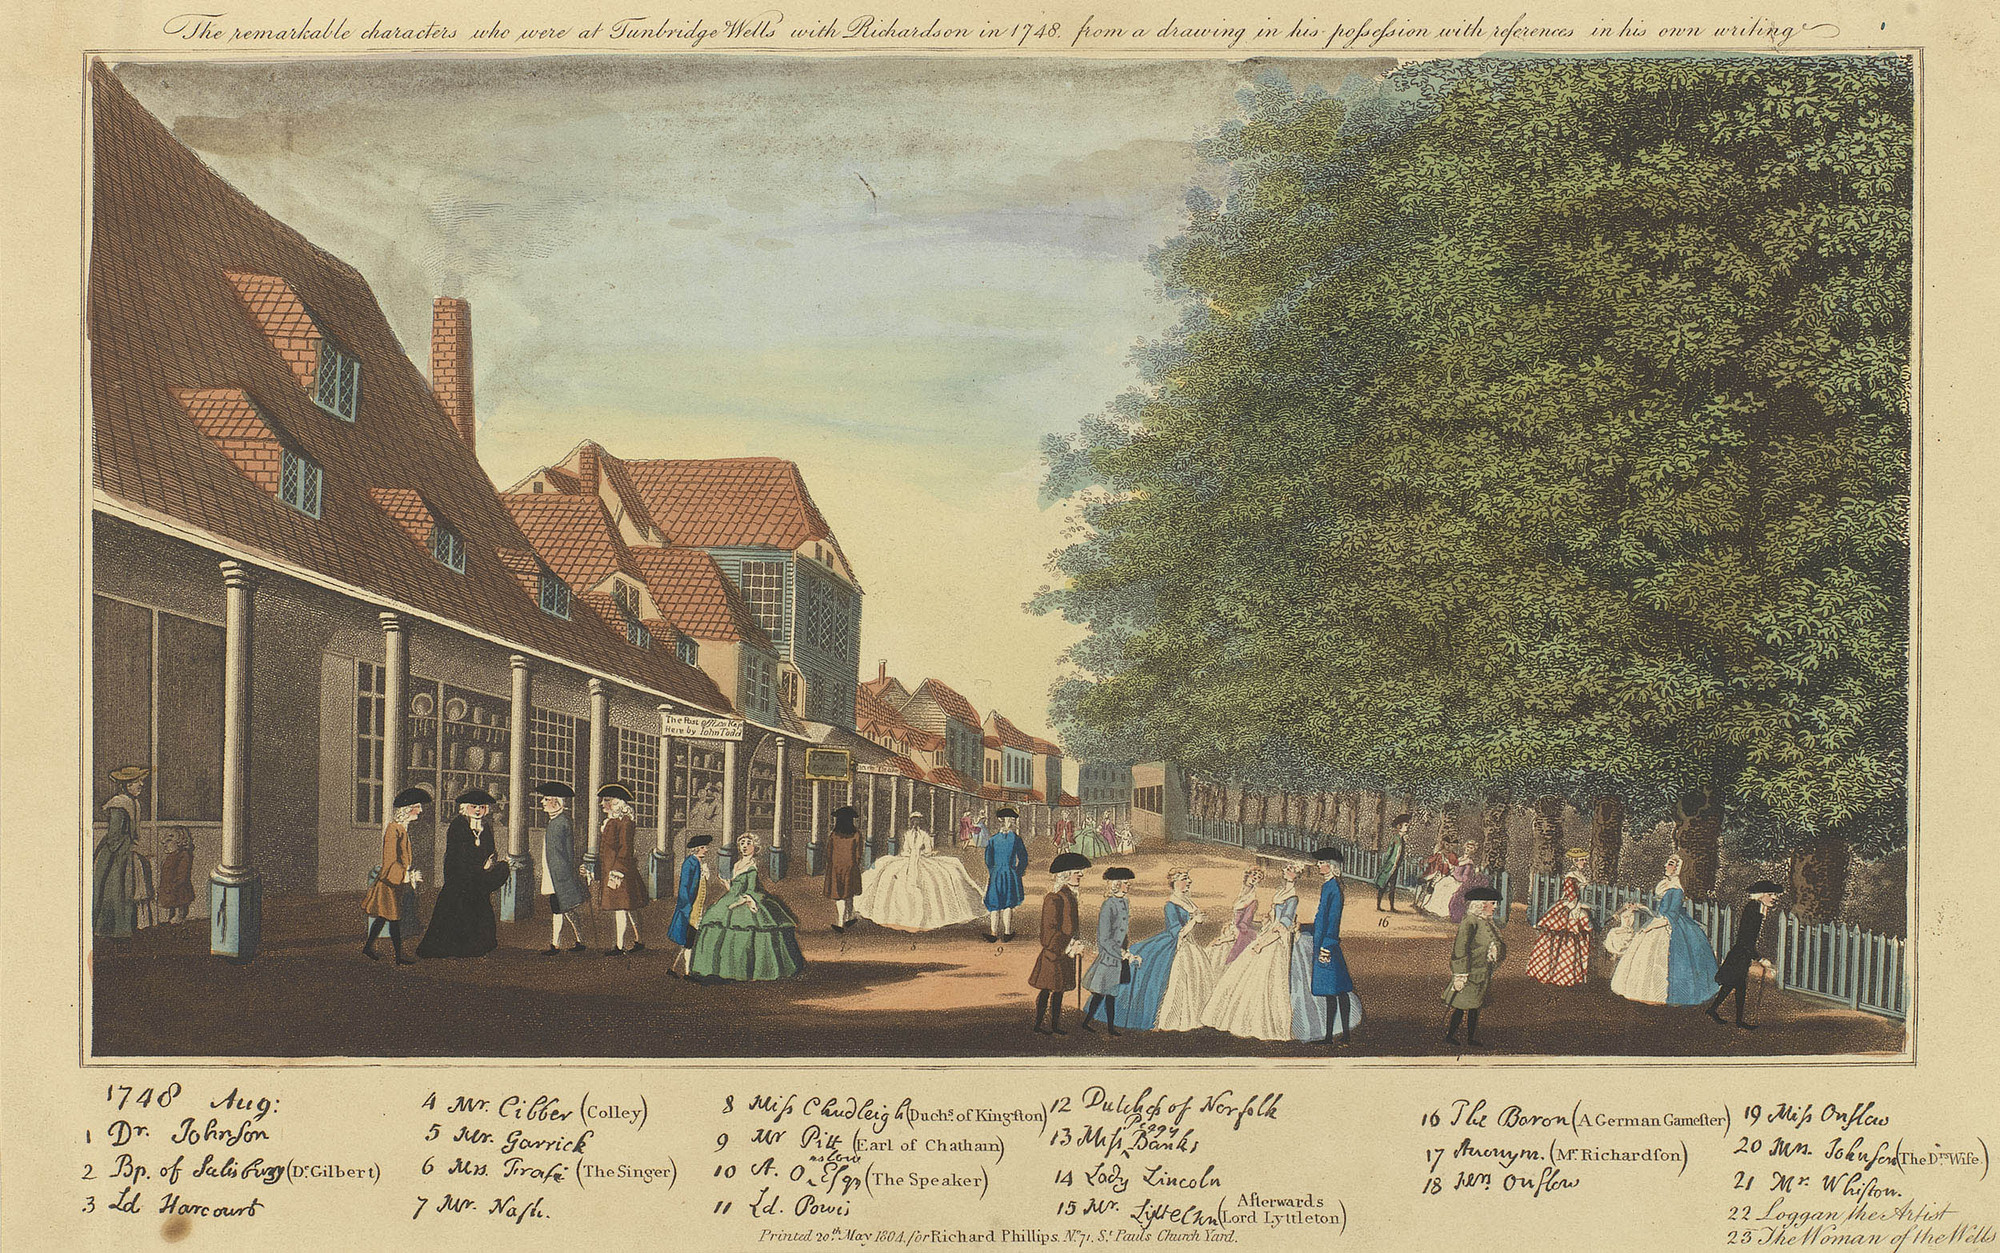 The remarkable characters who were at Tunbridge Wells with Richardson in 1748. from a drawing in his possession with references in his own writing
The Post office Kep
Here by Iohn Todd
7
8
9
16
1748 Aug:
1 Dr. Johnson
2 Bp. of Salisbury (Dr. Gilbert)
3 Ld Harcourt
4 Mr. Cibber (Colley)
5 Mr. Garrick
6 Mrs. Frasi (The Singer)
7 Mr. Nash.
8 Miss Chudleigh (Duchs. of Kingston)
9 Mr Pitt (Earl of Chatham)
10 A. Onslow Esqr (The Speaker)
11 Ld. Powis
12 Dutchess of Norfolk
13 Miss Peggy Banks
14 Lady Lincoln
15 Mr. Lyttelton (Afterwards Lord Lyttleton)
16 The Baron (A German Gamester)
17 Anonym. (Mr. Richardson)
18 Mrs. Onslow
19 Miss Onslow
20 Mrs. Johnson (The Drs. Wife.)
21 Mr. Whiston.
22 Loggan the Artist
23 The Woman of the Wells
Printed 20th. May 1804, for Richard Phillips, No. 71, St. Pauls Church Yard.